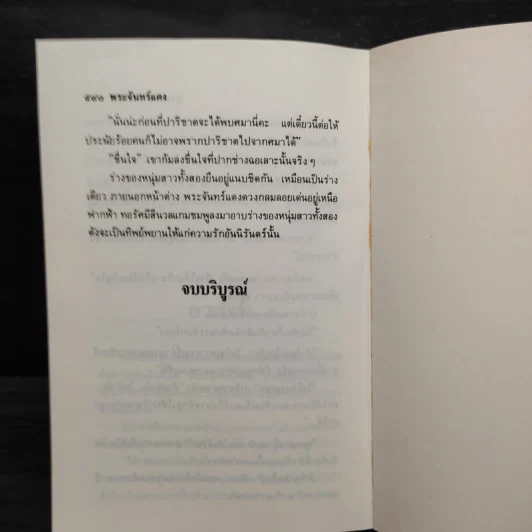 ๙๙๐ พระจันทร์แดง
"นั่นน่ะก่อนที่ปาริชาดจะได้พบศมานี่คะ แต่เดี๋ยวนี้ต่อให้
ประนัยร้อยคนก็ไม่อาจพรากปาริชาดไปจากศมาได้"
"ชื่นใจ" เขาก้มลงชื่นใจที่ปากช่างฉอเลาะนั้นจริง ๆ
ร่างของหนุ่มสาวทั้งสองยืนอยู่แนบชิดกัน เหมือนเป็นร่าง
เดียว ภายนอกหน้าต่าง พระจันทร์แดงดวงกลมลอยเด่นอยู่เหนือ
ฟากฟ้า ทอรัศมีสีนวลแกมชมพูลงมาอาบร่างของหนุ่มสาวทั้งสอง
ดังจะเป็นทิพย์พยานให้แก่ความรักอันนิรันดร์นั้น
จบบริบูรณ์